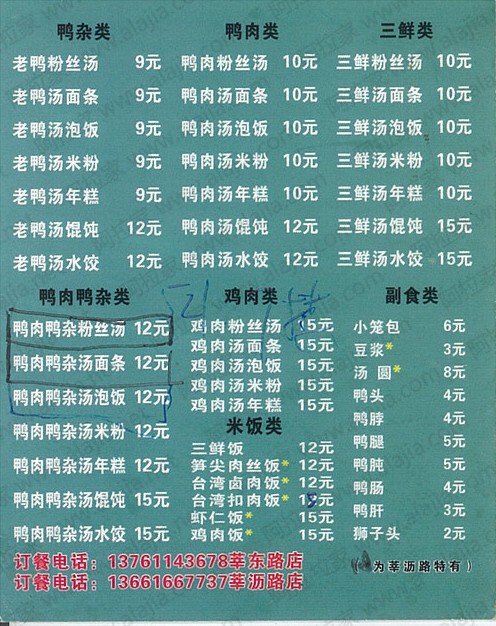 鸭杂类
老鸭粉丝汤 9元
老鸭汤面条 9元
老鸭汤泡饭 9元
老鸭汤米粉 9元
老鸭汤年糕 9元
老鸭汤馄饨 12元
老鸭汤水饺 12元
鸭肉类
鸭肉粉丝汤 10元
鸭肉汤面条 10元
鸭肉汤泡饭 10元
鸭肉汤米粉 10元
鸭肉汤年糕 10元
鸭肉汤馄饨 12元
鸭肉汤水饺 12元
三鲜类
三鲜粉丝汤 10元
三鲜汤面条 10元
三鲜汤泡饭 10元
三鲜汤米粉 10元
三鲜汤年糕 10元
三鲜汤馄饨 15元
三鲜汤水饺 15元
鸭肉鸭杂类
鸭肉鸭杂粉丝汤 12元
鸭肉鸭杂汤面条 12元
鸭肉鸭杂汤泡饭 12元
鸭肉鸭杂汤米粉 12元
鸭肉鸭杂汤年糕 12元
鸭肉鸭杂汤馄饨 15元
鸭肉鸭杂汤水饺 12元
鸡肉类
鸡肉粉丝汤 15元
鸡肉汤面条 15元
鸡肉汤泡饭 15元
鸡肉汤米粉 15元
鸡肉汤年糕 15元
米饭类
三鲜饭 12元
笋尖肉丝饭* 12元
台湾卤肉饭* 12元
台湾扣肉饭* 元
虾仁饭* 15元
鸡肉饭* 15元
副食类
小笼包 6元
豆浆* 3元
汤 圆* 8元
鸭头 4元
鸭脖 4元
鸭腿 5元
鸭肫 5元
鸭肠 4元
鸭肝 3元
狮子头 2元
(为莘沥路特有)
订餐电话：13761143678莘东路店
订餐电话：13661667737莘沥路店